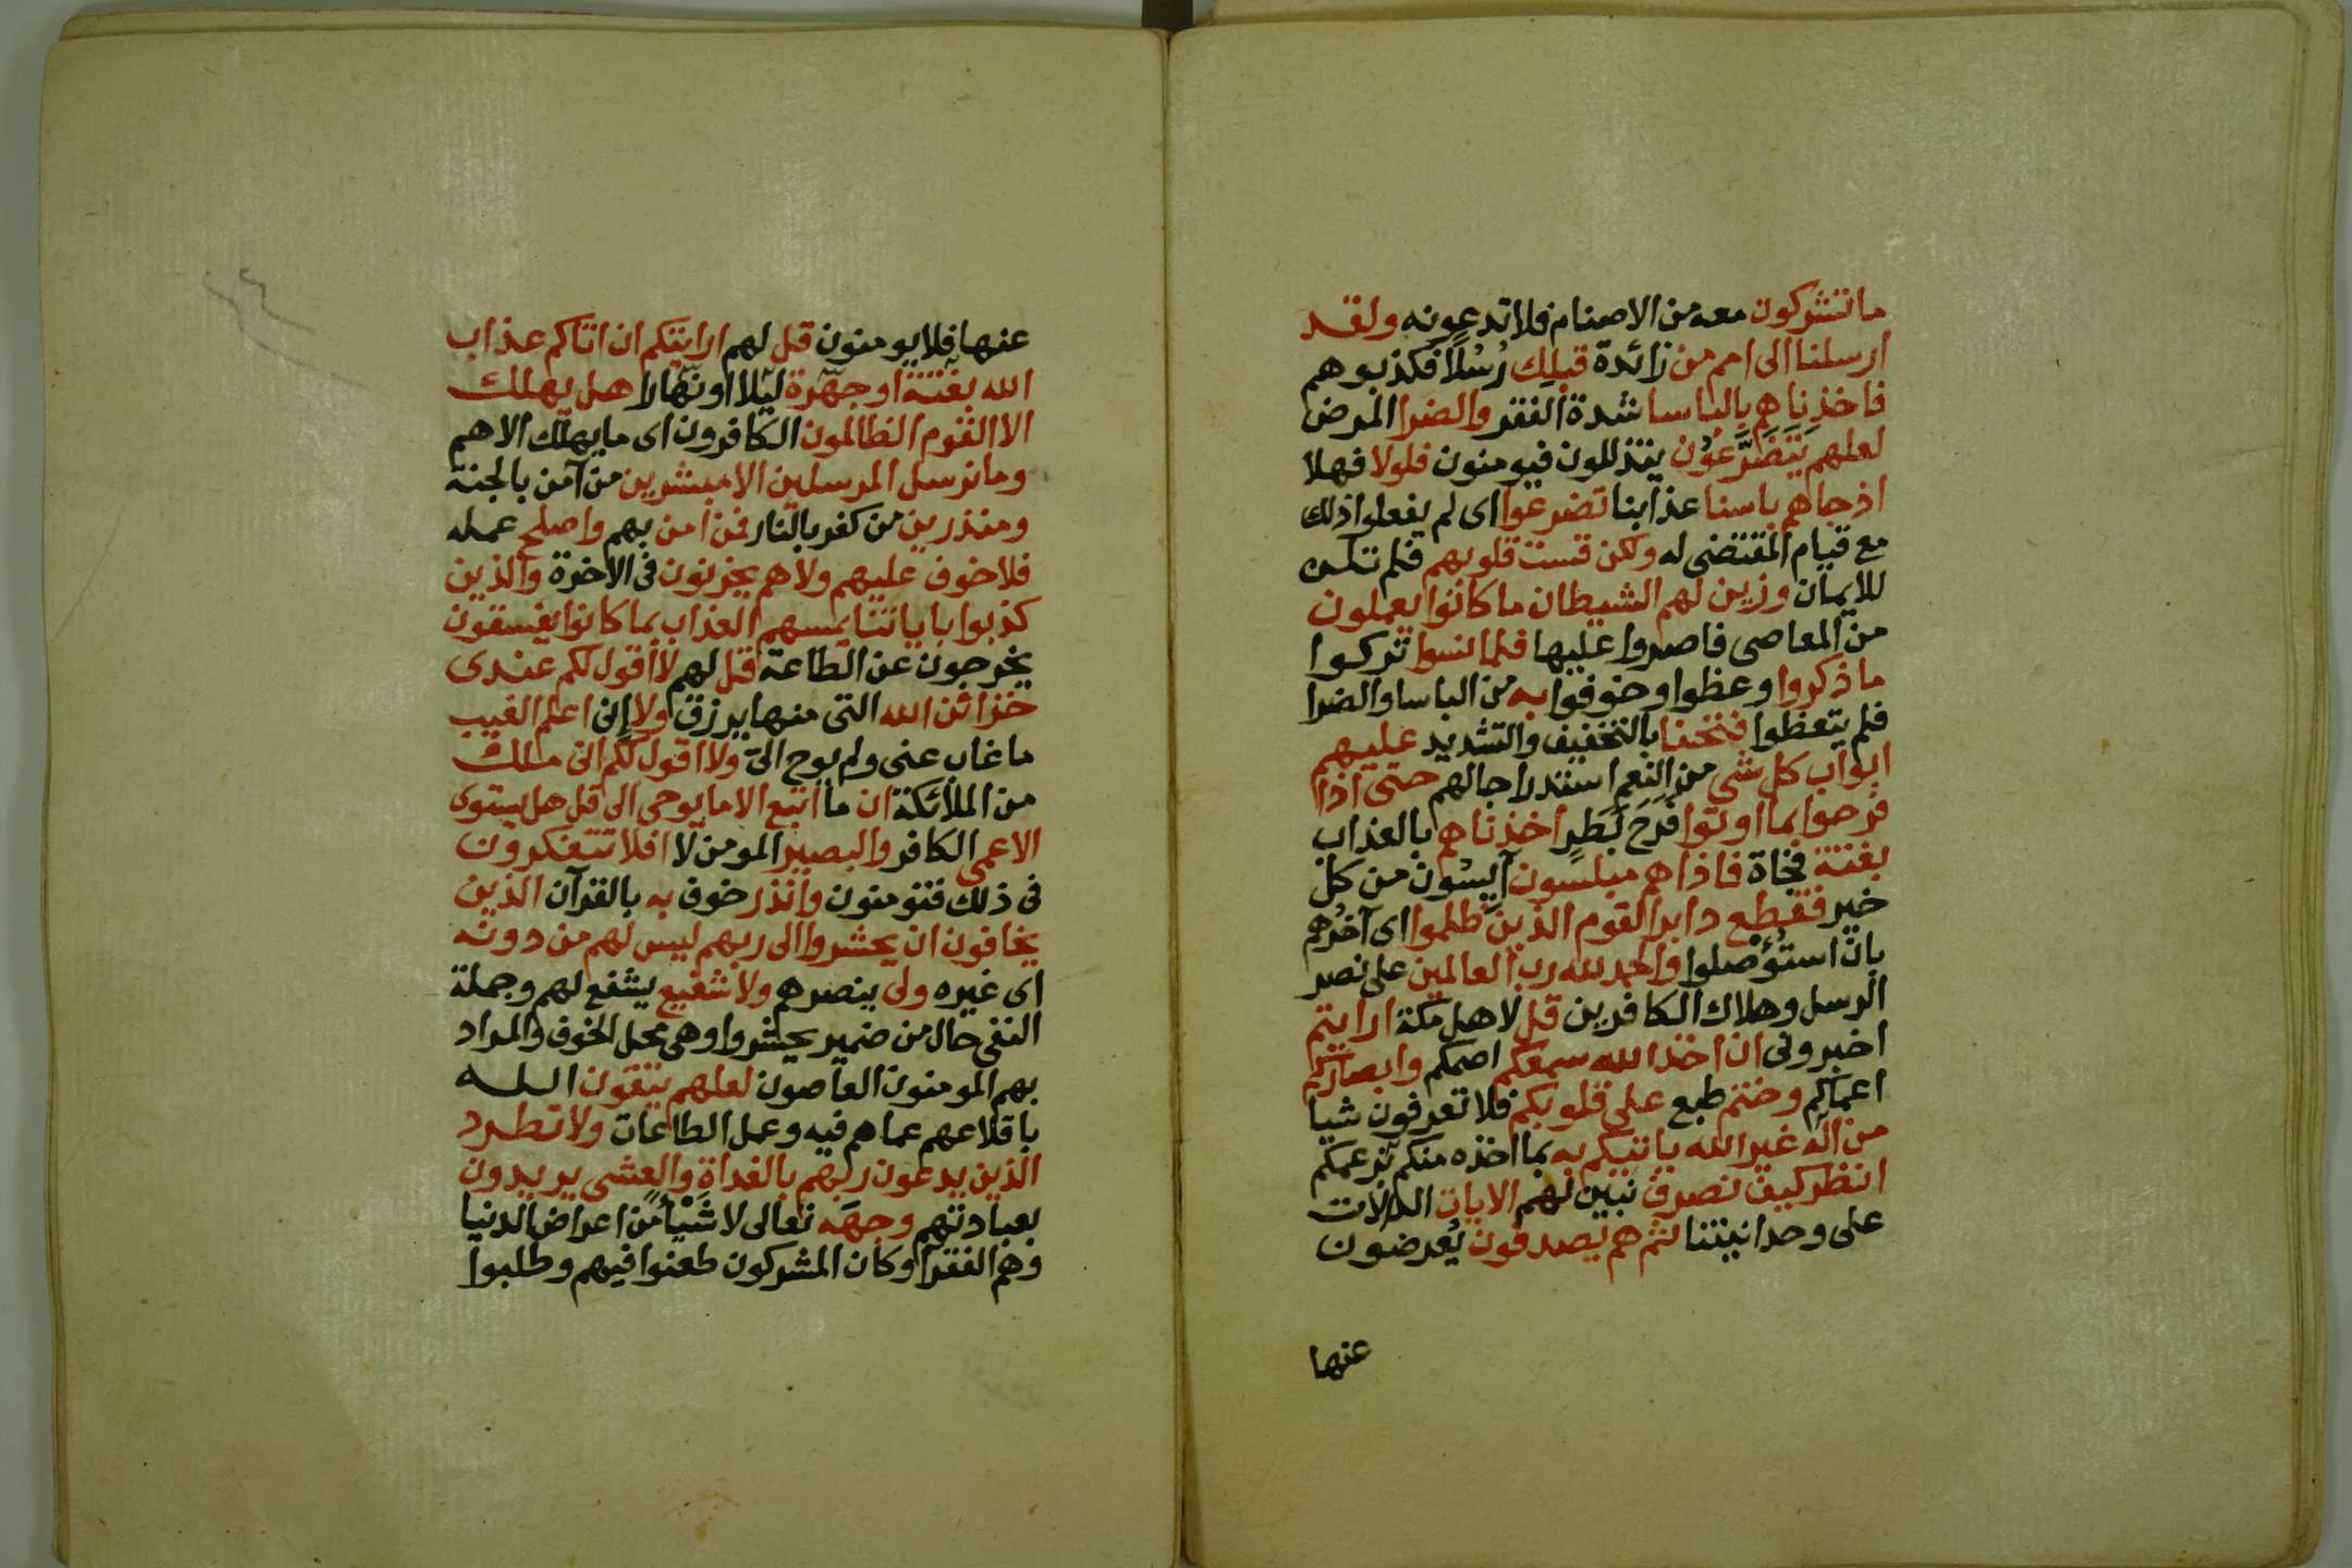 ما تشركون معه من الاصنام فلا تدعونه ولقد
ارسلنا الى امم من زائدة قبلك رُسُلًا فكذبوهم
فاخذناهم بالباسا شدة الفقر والضرا المرض
لعلهم يَتَضَرَّعُوْن يتذللون فيومنون فلولا فهلا
اذ جاهم باسنا عذابنا تضرعوا اى لم يفعلوا ذلك
مع قيام المقتضى له ولكن قست قلوبهم فلم تلن
للايمان وزين لهم الشيطان ما كانوا يعملون
من المعاصى فاصروا عليها فلما نسوا تركوا
ما ذكروا وعظوا وخوفوا به من الباسا والضرا
فلم يتعظوا فتحنا بالتخفيف والتشديد عليهم
ابواب كل شى من النعم استدراجا لهم حتى اذا
فرحوا بما اوتوا فَرَحَ بَطَرٍ اخذناهم بالعذاب
بغتة فجاة فاذا هم مبلسون آيِسُون من كل
خير فقطع دابر القوم الذين ظلموا اى آخرُهم
بان استُؤْصلوا والحمد لله رب العالمين على نصر
الرسل وهلاك الكافرين قل لاهل مكة ارايتم
اخبرونى ان اخذ الله سمعكم اصمكم وابصاركم
اعماكم وختم طبع على قلوبكم فلا تعرفون شيا
من اله غير الله ياتيكم به بما اخذه منكم بزعمكم
انظر كيف نصرف نبين لهم الايات الدلالات
على وحدانيتنا ثم هم يصدفون يُعرضون
عنها
عنها فلا يومنون قل لهم ارايتكم ان اتاكم عذاب
الله بغتة او جهرة ليلا او نهارا هل يهلك
الا القوم الظالمون الكافرون اى ما يهلك الا هم
وما نرسل المرسلين الا مبشرين من آمن بالجنة
ومنذرين من كفر بالنار فمن امن بهم واصلح عمله
فلا خوف عليهم ولا هم يحزنون فى الاخرة والذين
كذبوا باياتنا يمسهم العذاب بما كانوا يفسقون
يخرجون عن الطاعة قل لهم لا اقول لكم عندى
خزائن الله التى منها يرزق ولا إنى اعلم الغيب
ما غاب عنى ولم يوح الىّ ولا اقول لكم انى ملك
من الملائكة ان ما اتبع الا ما يوحى الى قل هل يستوى
الاعمى الكافر والبصير المومن لا افلا تتفكرون
فى ذلك فتومنون وانذر خوف به بالقرآن الذين
يخافون ان يحشروا الى ربهم ليس لهم من دونه
اى غيره ولى ينصرهم ولا شفيع يشفع لهم وجملة
النفى حال من ضمير يحشروا وهى محل الخوف والمراد
بهم المومنون العاصون لعلهم يتقون الله
باقلاعهم عما هم فيه وعمل الطاعات ولا تطرد
الذين يدعون ربهم بالغداة والعشى يريدون
بعبادتهم وجهَه تعالى لا شَيْأً من اعراض الدنيا
وهم الفقرا وكان المشركون طعنوا فيهم وطلبوا